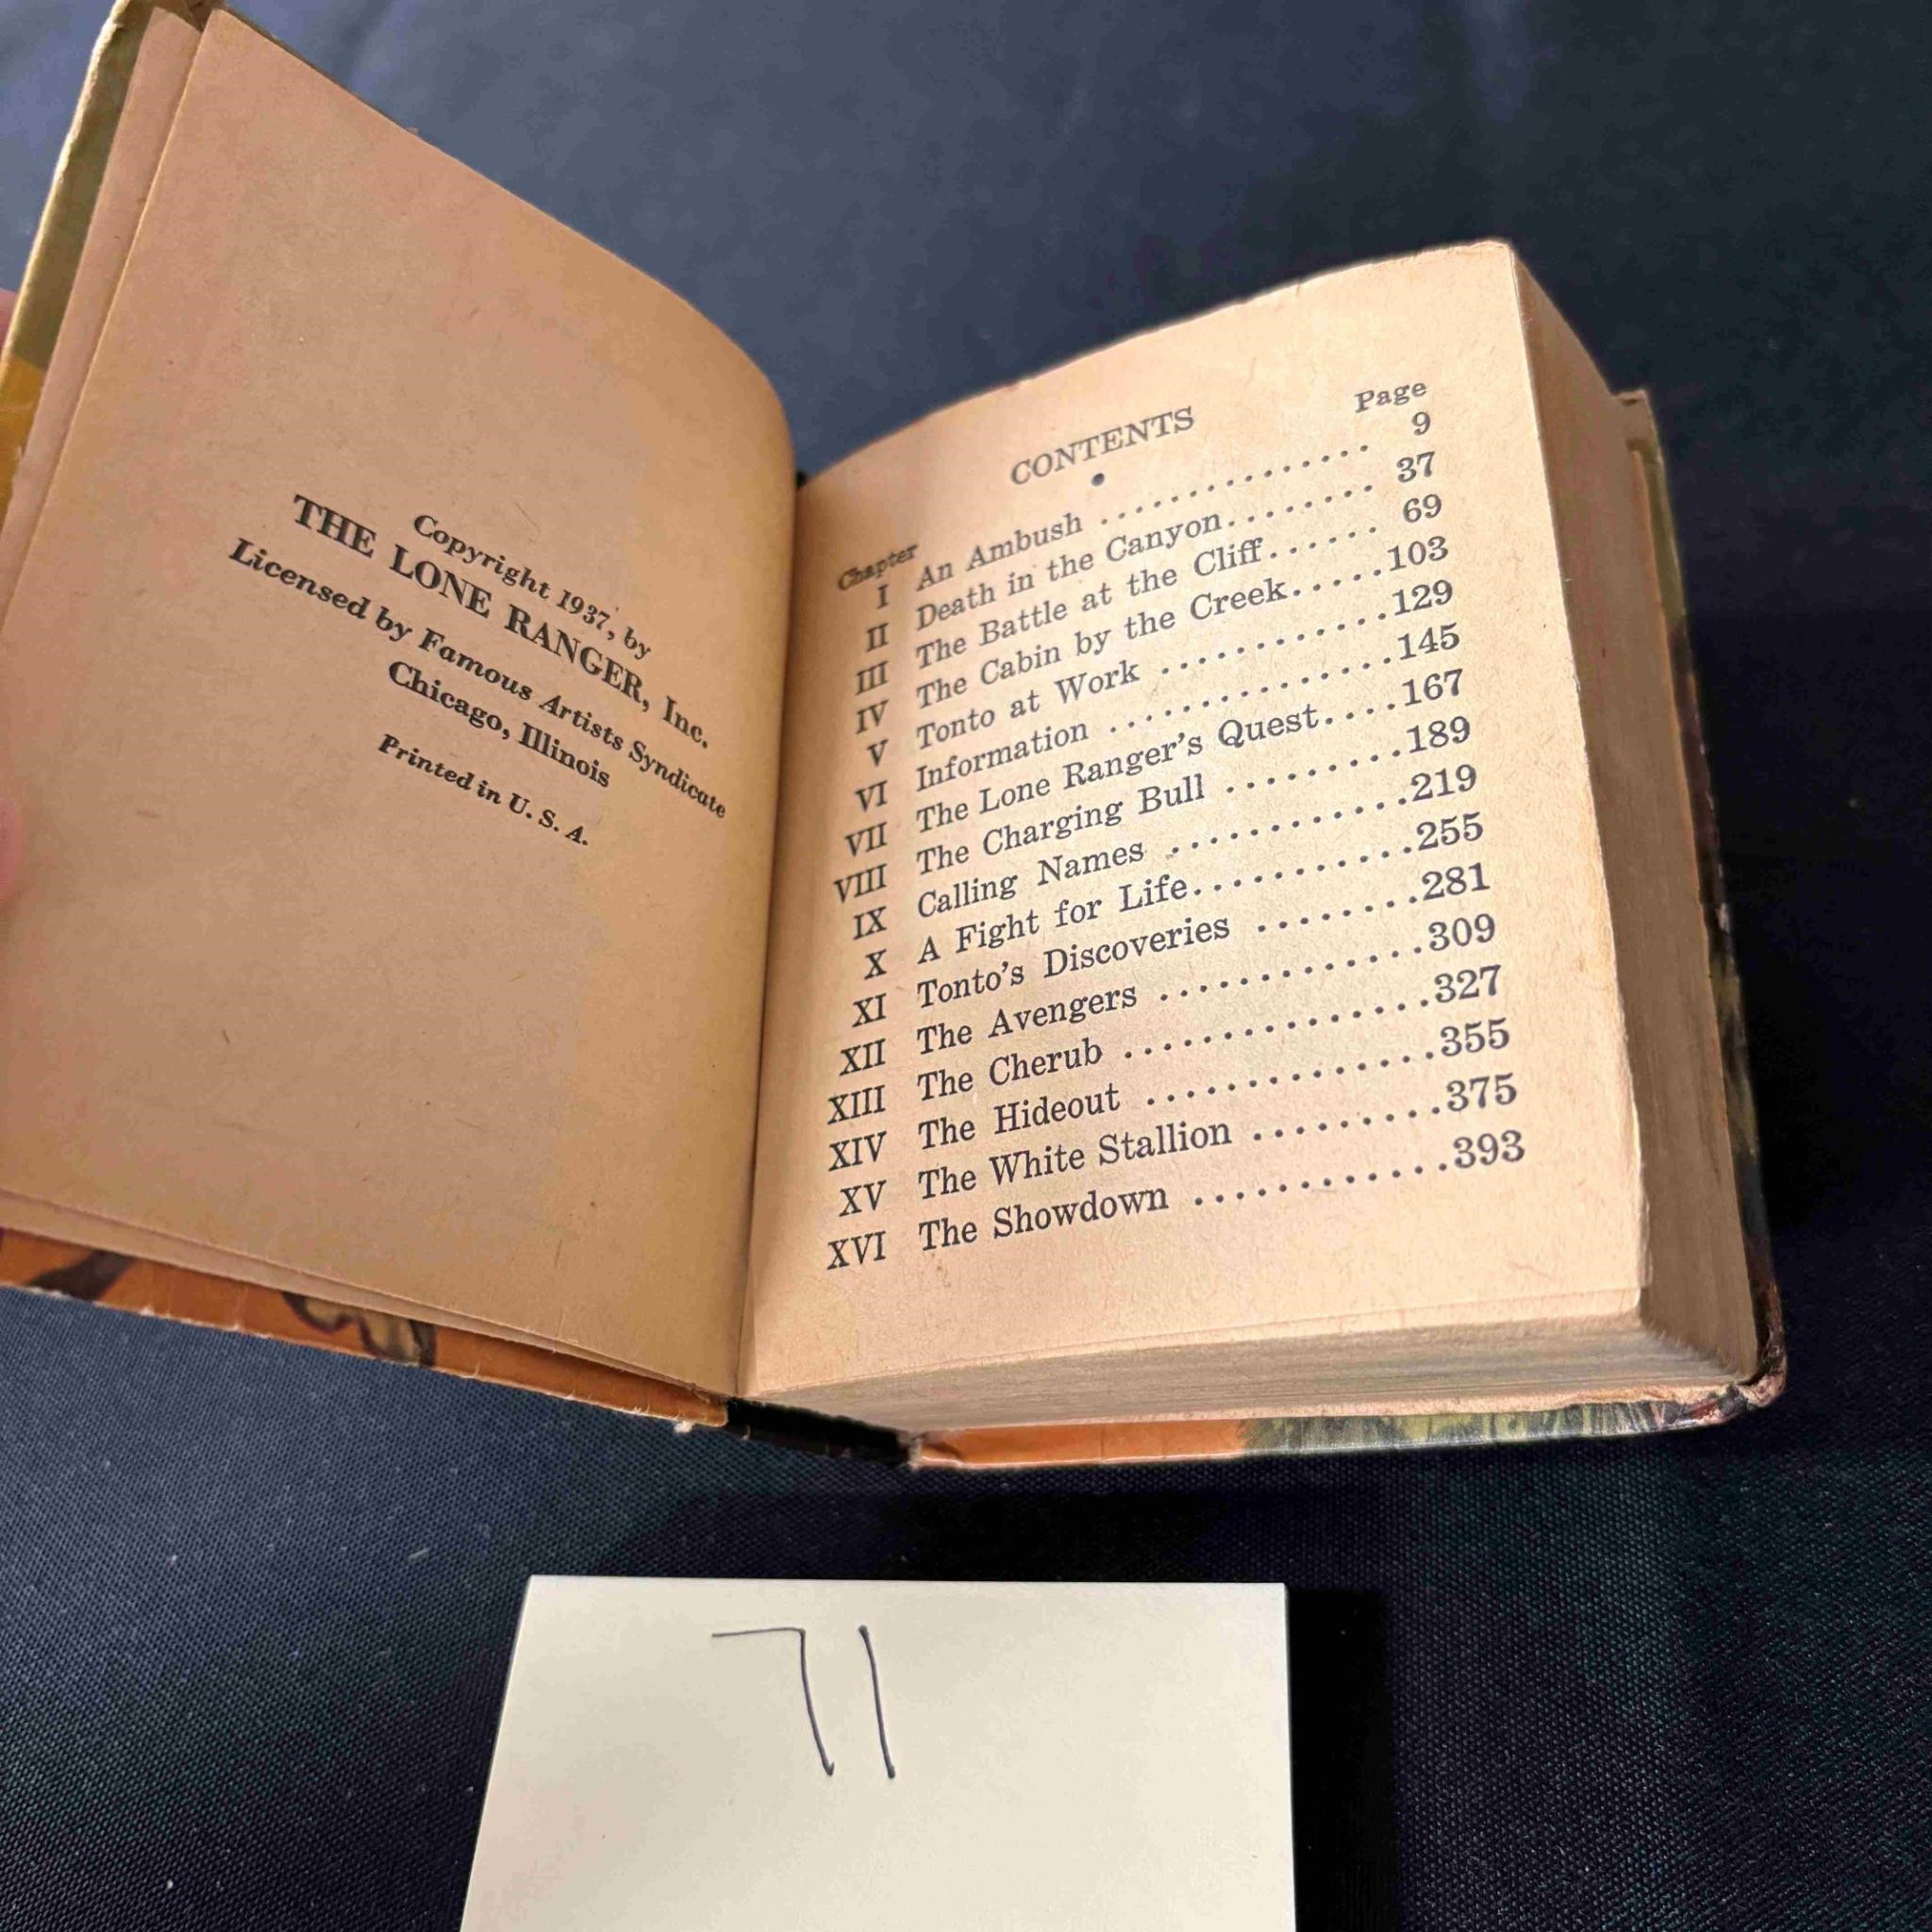 Copyright 1937, by
THE LONE RANGER, Inc.
Licensed by Famous Artists Syndicate
Chicago, Illinois
Printed in U. S. A.
CONTENTS
Chapter Page
I An Ambush .............. 9
II Death in the Canyon........ 37
III The Battle at the Cliff...... 69
IV The Cabin by the Creek.....103
V Tonto at Work ...........129
VI Information ..............145
VII The Lone Ranger's Quest....167
VIII The Charging Bull .........189
IX Calling Names ............219
X A Fight for Life...........255
XI Tonto's Discoveries ........281
XII The Avengers .............309
XIII The Cherub ...............327
XIV The Hideout ..............355
XV The White Stallion .........375
XVI The Showdown ............393
71